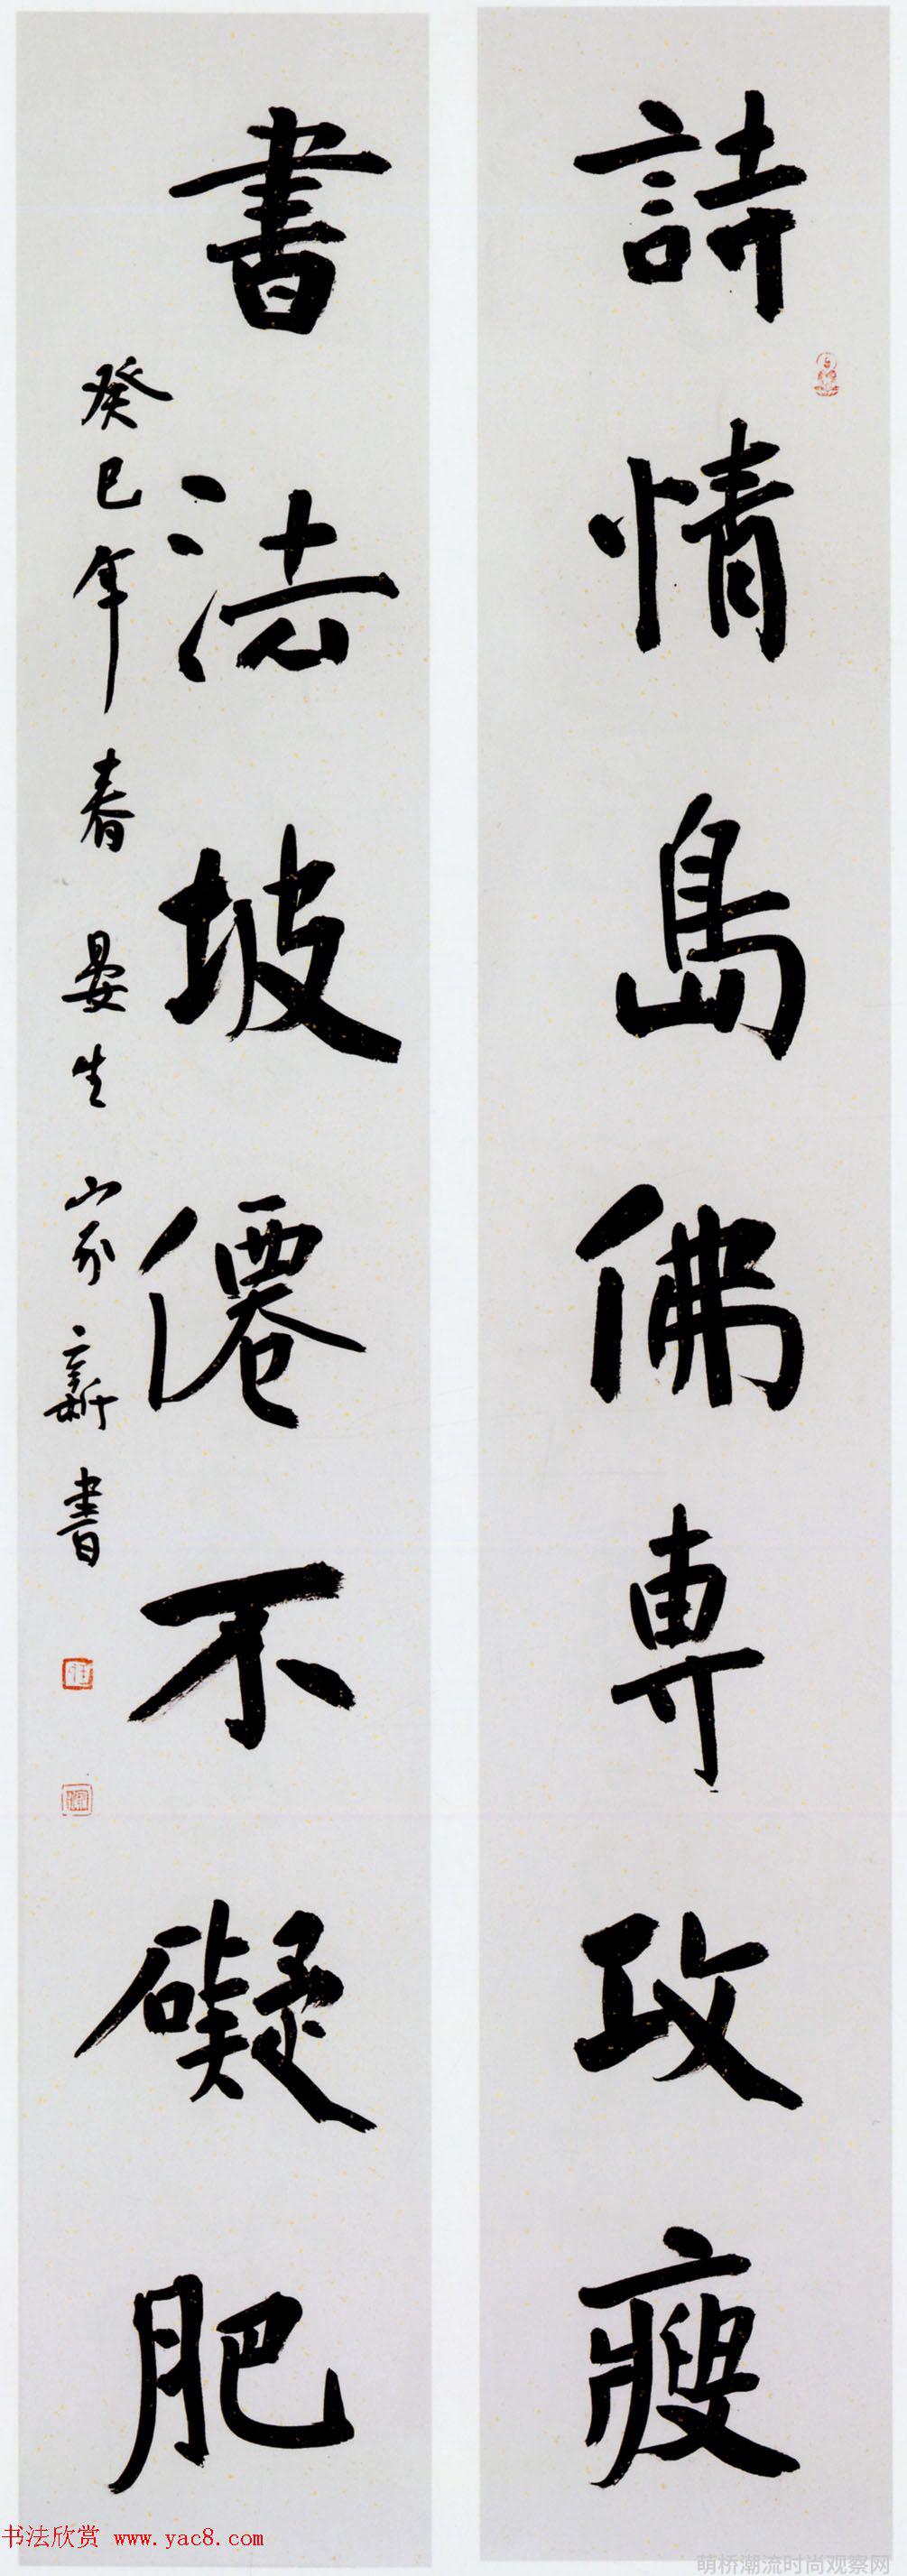 詩情島佛專攻瘦
書法坡僊不礙肥
癸巳年春晏生家新書
书法欣赏 www.yac8.com
萌桥潮流时尚观察网